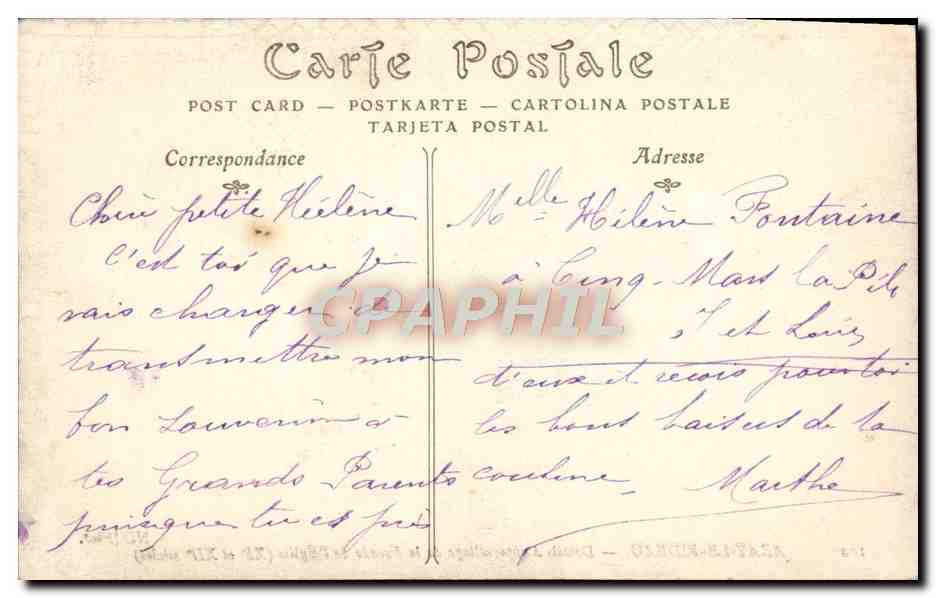 Carte Postale
POST CARD — POSTKARTE — CARTOLINA POSTALE
TARJETA POSTAL
Correspondance
Chère petite Hélène
C'est toi que je
vais charger de
transmettre mon
bon souvenir à
tes Grands Parents
puisque tu es près
Adresse
Melle Hélène Fontaine
à Cinq-Mars la Pile
I et Loire
d'eux et reçois pour toi
les bons baisers de ta
cousine, Marthe
CPAPHIL
AZAY-LE-RIDEAU — Détails de la Façade de l'Eglise (XIe et XIIe siècles)